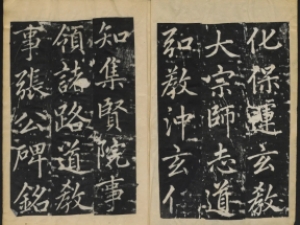 化保運玄教
大宗師志道
弘教沖玄仁
知集賢院事
領諸路道教
事張公碑銘